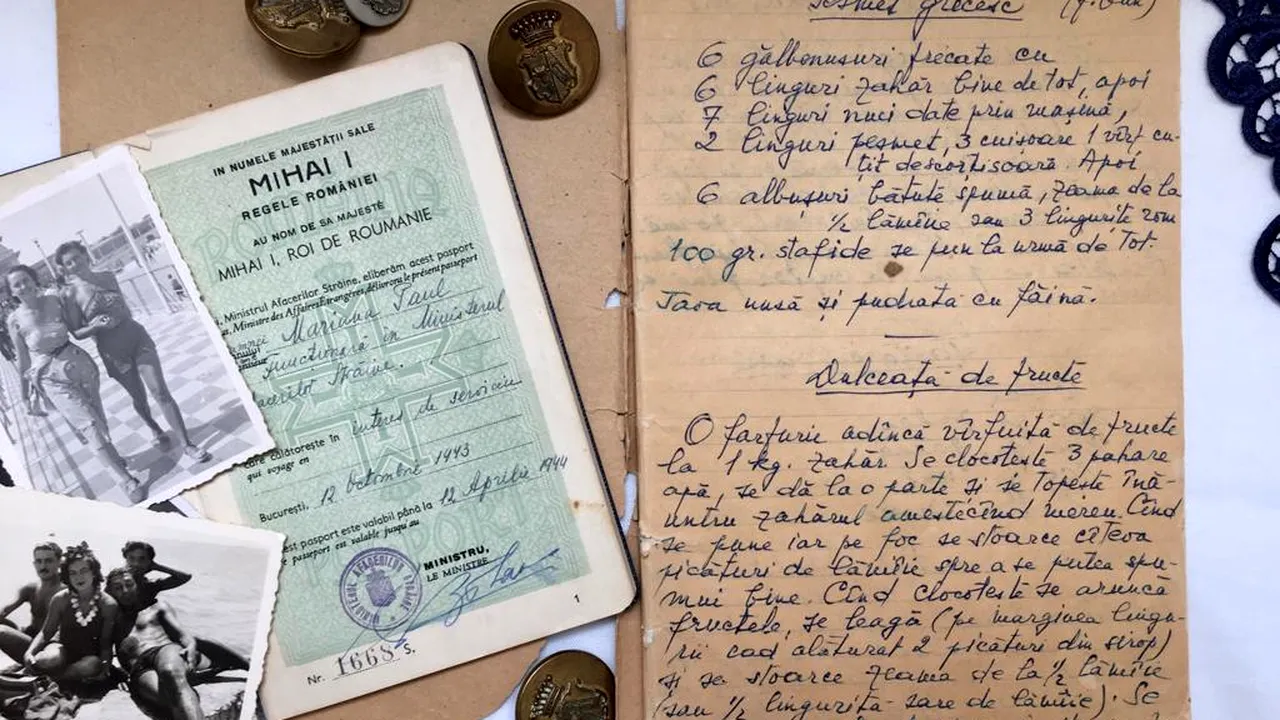 IN NUMELE MAJESTĂȚII SALE
MIHAI I
REGELE ROMÂNIEI
AU NOM DE SA MAJESTÉ
MIHAI I, ROI DE ROUMANIE
Ministrul Afacerilor Străine, eliberăm acest pasport
Ministre des Affaires Etrangères délivrons le présent passeport
Mariana Paul
Funcționară în Ministerul
Străine.
care călătorește în interes de serviciu
qui voyage en
București, 12 Octombrie 1943
pasport este valabil până la 12 Aprilie 1944
passeport est valable jusqu'au
MINISTRU,
LE MINISTRE
MINISTERUL AFACERILOR STRĂINE
Nr. 1668 S.
1
grecesc
6 gălbenușuri frecate cu
6 linguri zahăr bine de tot, apoi
7 linguri nuci date prin mașină,
2 linguri pesmet, 3 cuișoare 1 vîrf cu-
țit descorțișoară. Apoi
6 albușuri bătute spumă, zeama de la
1/2 lămîie sau 3 lingurite rom
100 gr. stafide se pun la urmă de tot.
Tava unsă și pudrată cu făină.
Dulceață de fructe
O farfurie adîncă vîrfuită de fructe
la 1 kg. zahăr. Se clocotește 3 pahare
apă, se dă la o parte și se topește înă-
untru zahărul amestecînd mereu. Cînd
se pune iar pe foc se stoarce cîteva
picături de lămîie spre a se putea spu-
mui bine. Cînd clocotește se aruncă
fructele, se leagă (pe marginea lingu-
rii cad alăturat 2 picături din sirop)
și se stoarce zeama de la 1/2 lămîie
(sau 1/2 linguriță sare de lămîie). Se